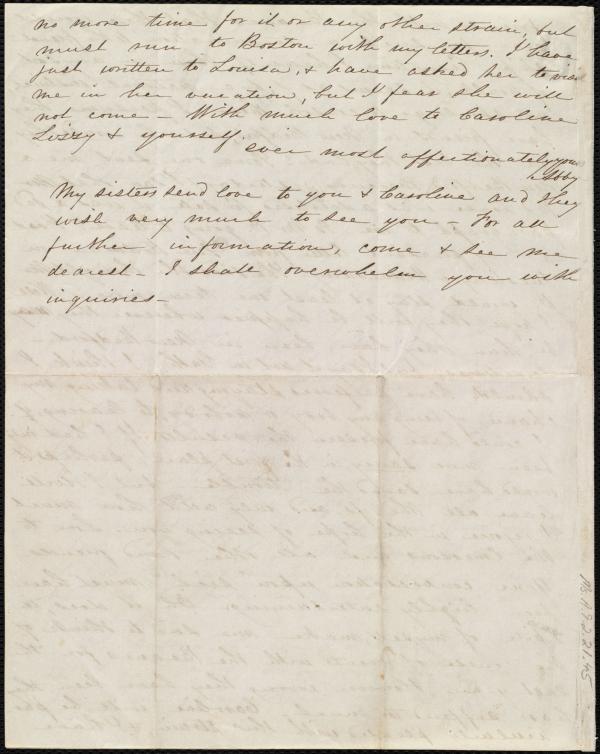 no more time for it or any other strain, but
must run to Boston with my letters. I have
just written to Louisa, & have asked her to visit
me in her vacation, but I fear she will
not come – With much love to Caroline
Lizzy & yourself.
ever most affectionately yours
Abby
My sisters send love to you & Caroline and they
wish very much to see you – For all
further information, come & see me
dearest – I shall overwhelm you with
inquiries –
Ms.A.9.2.21.45